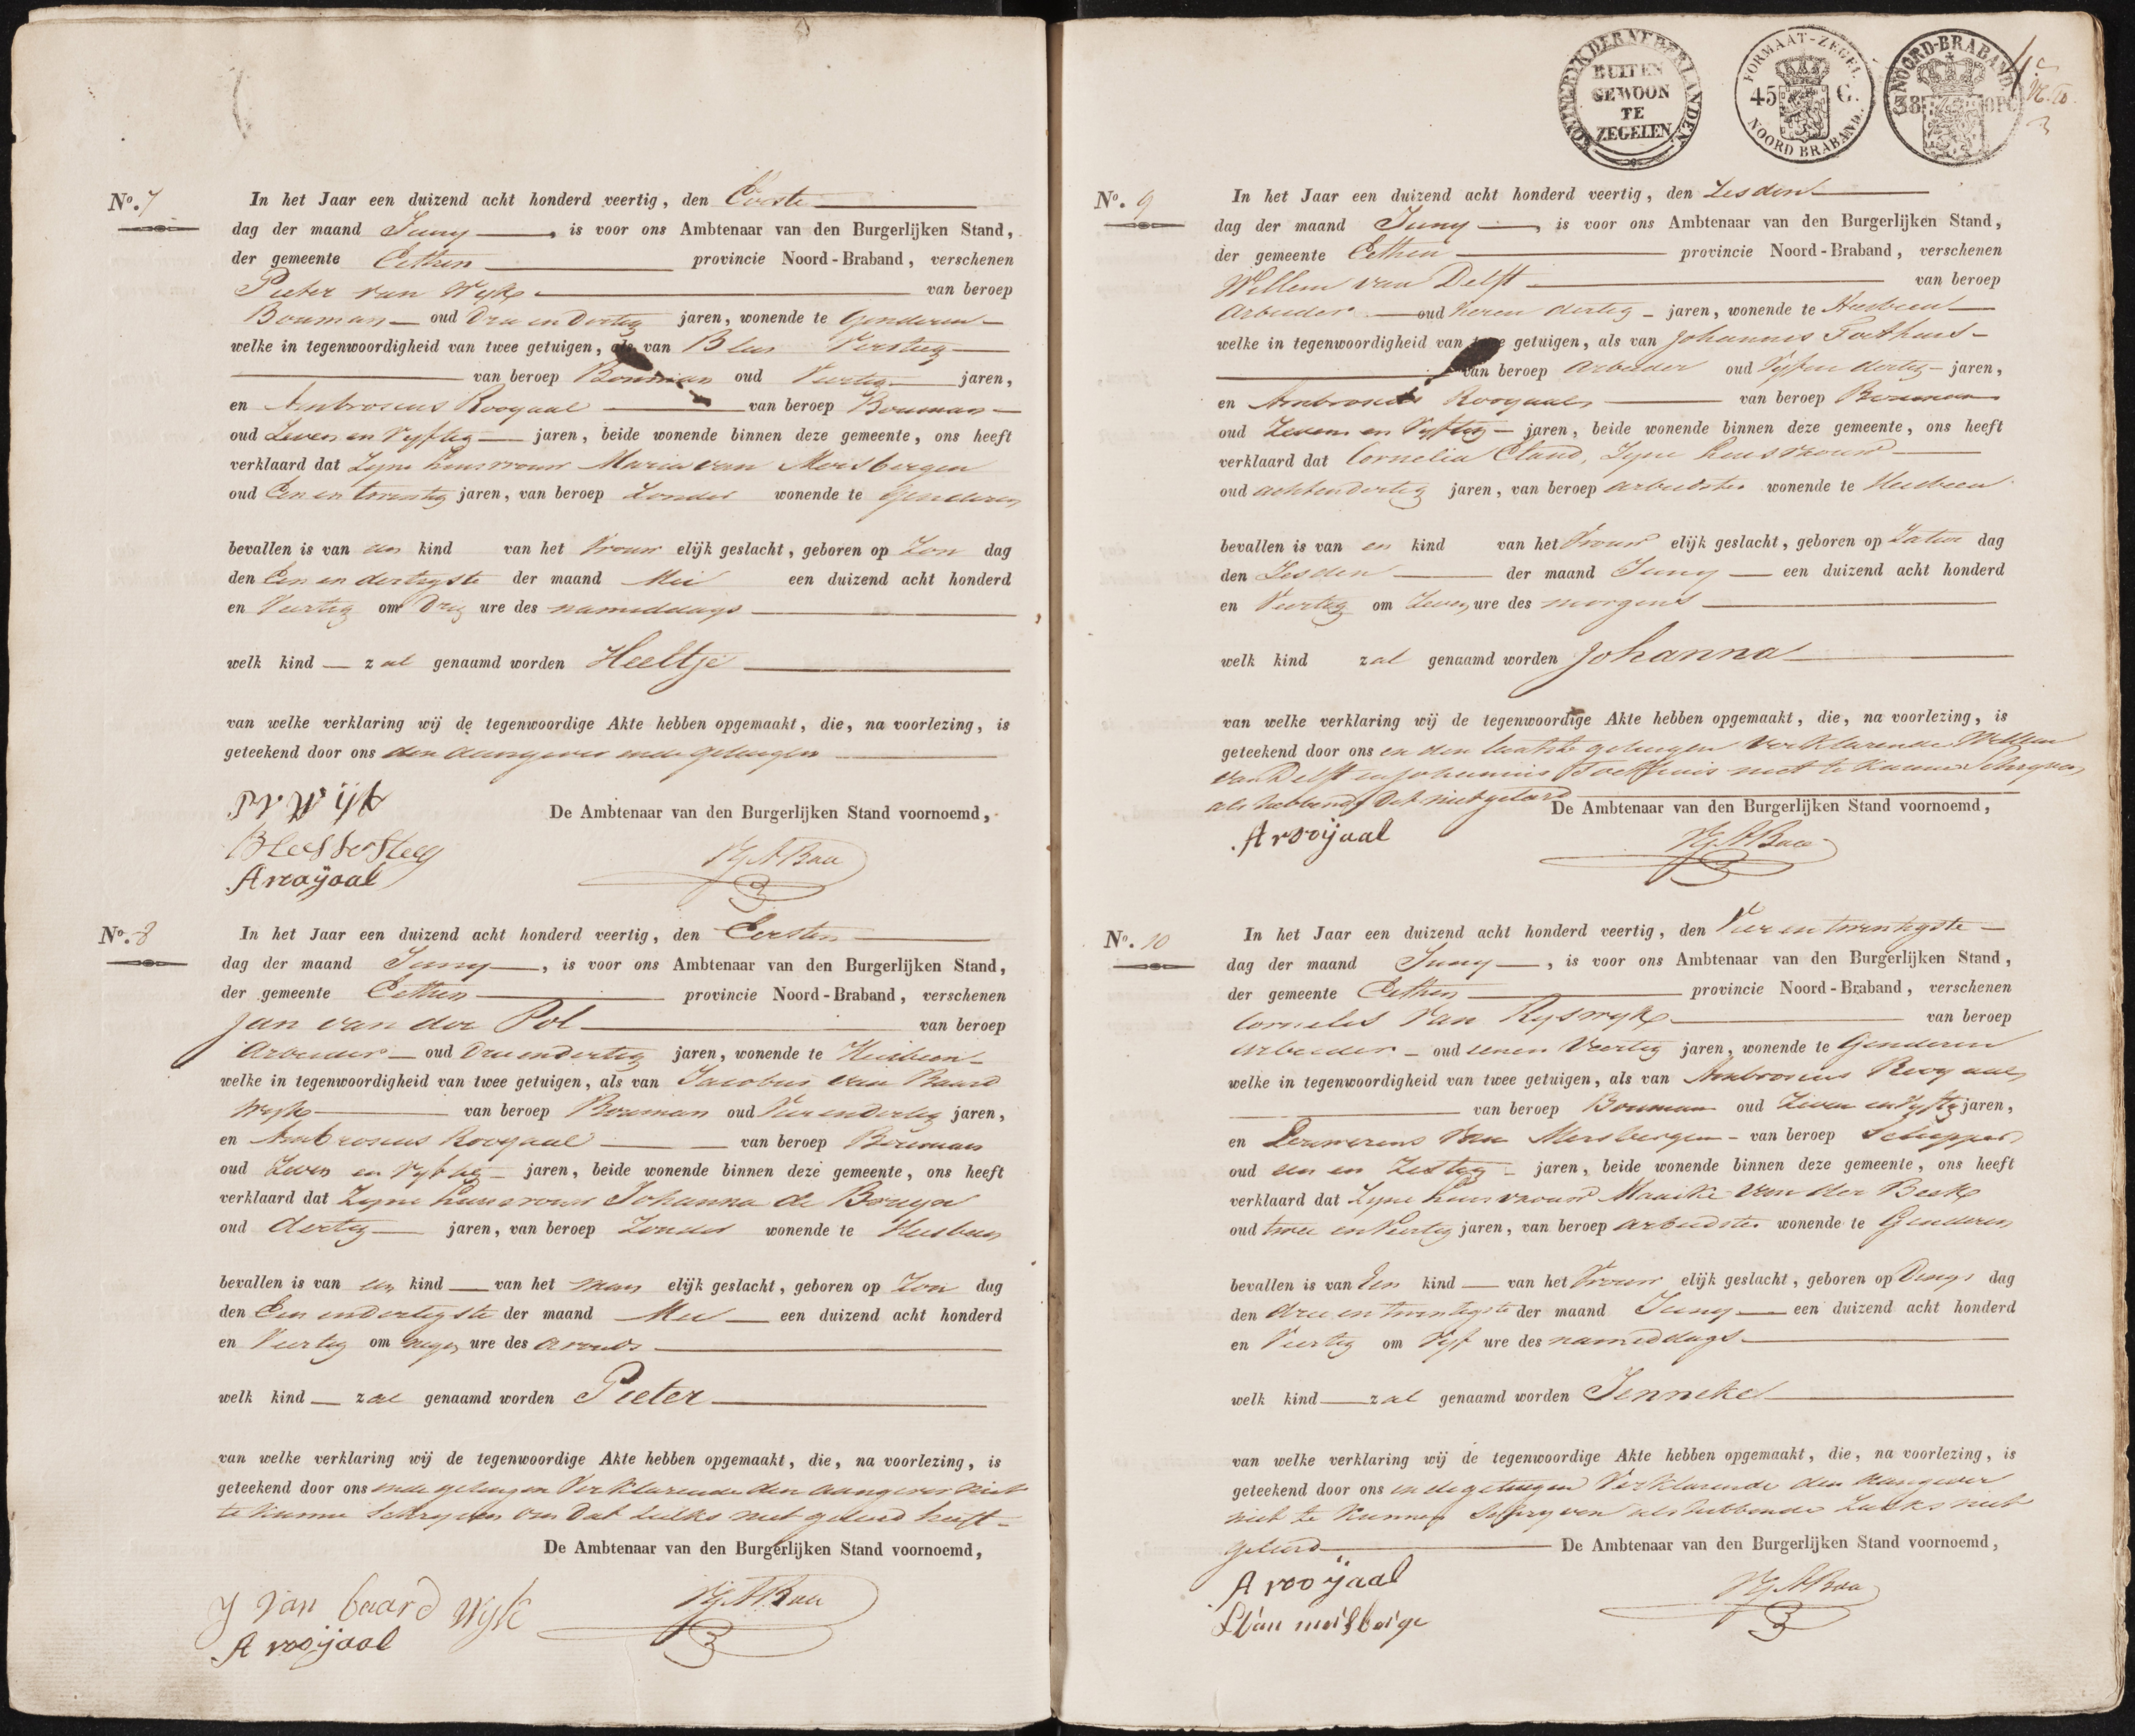 No. 7
In het Jaar een duizend acht honderd veertig, den Eerste
dag der maand Juny, is voor ons Ambtenaar van den Burgerlijken Stand,
der gemeente Eethen provincie Noord-Braband, verschenen
Pieter van Wijk van beroep
Bouman oud Drie en Dertig jaren, wonende te Genderen
welke in tegenwoordigheid van twee getuigen, als van Blees Versteeg
van beroep Bouman oud Veertig jaren,
en Ambrosius Rooyaal van beroep Bouman
oud Zeven en Vyftig jaren, beide wonende binnen deze gemeente, ons heeft
verklaard dat Zyne huisvrouw Maria van Mersbergen
oud Een en twentig jaren, van beroep Zonder wonende te Genderen
bevallen is van een kind van het Vrouw elijk geslacht, geboren op Zon dag
den Een en dertigste der maand Mei een duizend acht honderd
en Veertig om Drie ure des namiddags
welk kind zal genaamd worden Heeltje
van welke verklaring wij de tegenwoordige Akte hebben opgemaakt, die, na voorlezing, is
geteekend door ons den aangever en de getuigen
P V Wijk
De Ambtenaar van den Burgerlijken Stand voornoemd,
Blees versteeg
A rooijaal
No. 8
In het Jaar een duizend acht honderd veertig, den Eersten
dag der maand Juny, is voor ons Ambtenaar van den Burgerlijken Stand,
der gemeente Eethen provincie Noord-Braband, verschenen
Jan van der Pol van beroep
Arbeider oud Drie en dertig jaren, wonende te Heesbeen
welke in tegenwoordigheid van twee getuigen, als van Jacobus van Baard
Wijk van beroep Bouman oud Vier en dertig jaren,
en Ambrosius Rooyaal van beroep Bouman
oud Zeven en Vyftig jaren, beide wonende binnen deze gemeente, ons heeft
verklaard dat Zyne huisvrouw Johanna de Bruyn
oud dertig jaren, van beroep Zonder wonende te Heesbeen
bevallen is van een kind van het man elijk geslacht, geboren op Zon dag
den Een en dertigste der maand Mei een duizend acht honderd
en Veertig om negen ure des avonds
welk kind zal genaamd worden Pieter
van welke verklaring wij de tegenwoordige Akte hebben opgemaakt, die, na voorlezing, is
geteekend door ons en de getuigen Verklarende den aangever niet
te kunnen Schryven om Dat zulks niet geleerd heeft
De Ambtenaar van den Burgerlijken Stand voornoemd,
J van baard Wijk
A rooijaal
KONINGRYK DER NEDERLANDEN
BUITEN
GEWOON
TE
ZEGELEN
FORMAAT-ZEGEL
45 C.
NOORD BRABAND
NOORD-BRABAND
38 OPC
No. 9
In het Jaar een duizend acht honderd veertig, den Zesden
dag der maand Juny is voor ons Ambtenaar van den Burgerlijken Stand,
der gemeente Eethen provincie Noord-Braband, verschenen
Willem van Delft van beroep
Arbeider oud Zeven dertig jaren, wonende te Heesbeen
welke in tegenwoordigheid van twee getuigen, als van Johannes Toethuis
van beroep Arbeider oud Vyf en dertig jaren,
en Ambrosius Rooyaal van beroep Bouman
oud Zeven en Vyftig jaren, beide wonende binnen deze gemeente, ons heeft
verklaard dat Cornelia Cland, Zyne huisvrouw
oud acht en Dertig jaren, van beroep arbeidster wonende te Heesbeen
bevallen is van en kind van het Vrouw elijk geslacht, geboren op Zatur dag
den Zesden der maand Juny een duizend acht honderd
en Veertig om Zeven ure des morgens
welk kind zal genaamd worden Johanna
van welke verklaring wij de tegenwoordige Akte hebben opgemaakt, die, na voorlezing, is
geteekend door ons en den laatste getuigen Verklarende Willem
van Delft en Johannis Toethuis niet te kunnen Schryven
als hebbende Dit niet geleerd
De Ambtenaar van den Burgerlijken Stand voornoemd,
A rooijaal
No. 10
In het Jaar een duizend acht honderd veertig, den Vier en twentigste
dag der maand Juny, is voor ons Ambtenaar van den Burgerlijken Stand,
der gemeente Eethen provincie Noord-Braband, verschenen
Cornelis Van Ryswyk van beroep
Arbeider oud eenen Veertig jaren, wonende te Genderen
welke in tegenwoordigheid van twee getuigen, als van Ambrosius Rooyaal
van beroep Bouman oud Zeven en Vyftig jaren,
en Louwerens Van Mersbergen van beroep Schipper
oud een en Zestig jaren, beide wonende binnen deze gemeente, ons heeft
verklaard dat Zyne huisvrouw Maaike van der Beek
oud twee en Veertig jaren, van beroep arbeidster wonende te Genderen
bevallen is van Een kind van het Vrouw elijk geslacht, geboren op Dings dag
den drie en twintigste der maand Juny een duizend acht honderd
en Veertig om Vyf ure des namiddags
welk kind zal genaamd worden Jenneke
van welke verklaring wij de tegenwoordige Akte hebben opgemaakt, die, na voorlezing, is
geteekend door ons en de getuigen Verklarende den Aangever
niet te kunnen Schryven als hebbende Zulks niet
geleerd De Ambtenaar van den Burgerlijken Stand voornoemd,
A rooijaal
L Van mersberge